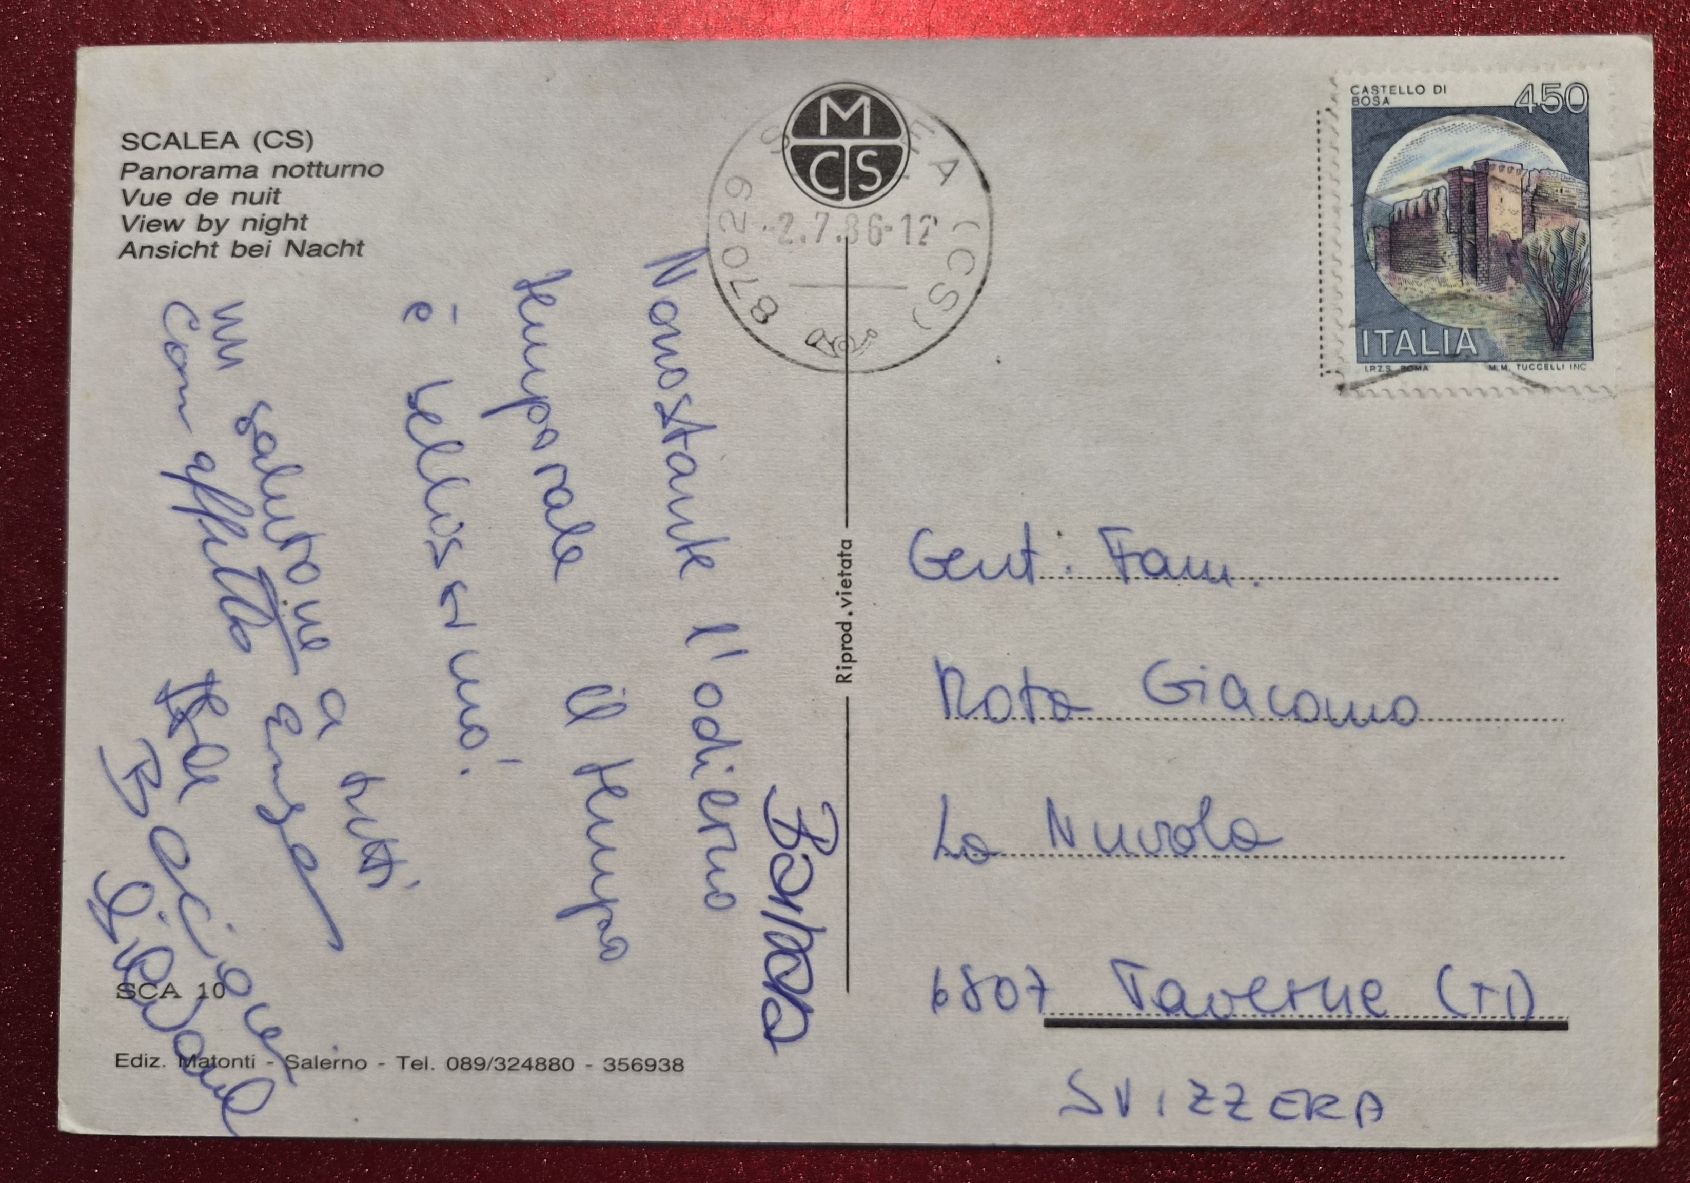 SCALEA (CS)
Panorama notturno
Vue de nuit
View by night
Ansicht bei Nacht
M
CS
87029 SCALEA (CS)
-2.7.86-12
CASTELLO DI
BOSA
450
ITALIA
I.P.Z.S. ROMA M.M. TUCCELLI INC
Nonostante l'odierno
temporale il tempo
è bellissimo!
un salutone a tutti
Con affetto Enza
Baci
Barbara
Riprod. vietata
Gent. Fam.
Rota Giacomo
La Nuvola
6807 Taverne (TI)
SVIZZERA
SCA 10
Ediz. Matonti - Salerno - Tel. 089/324880 - 356938